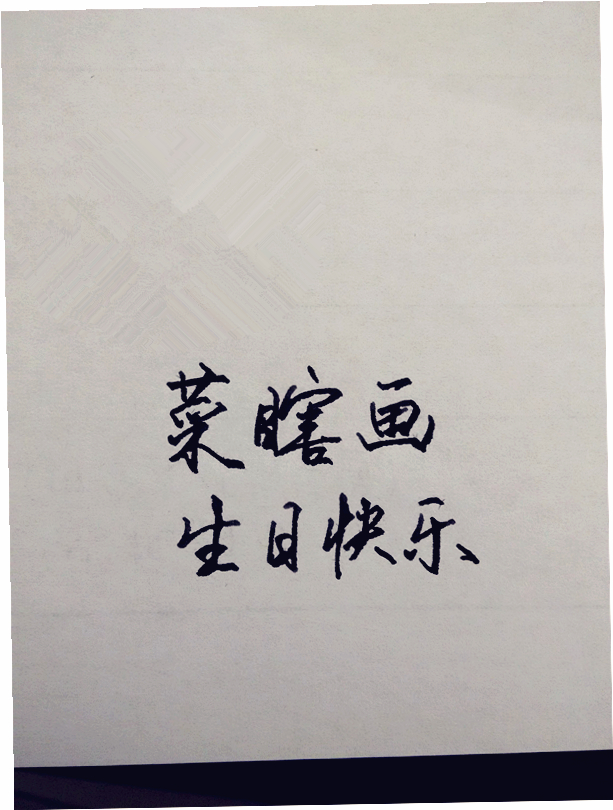 菜瞎画
生日快乐